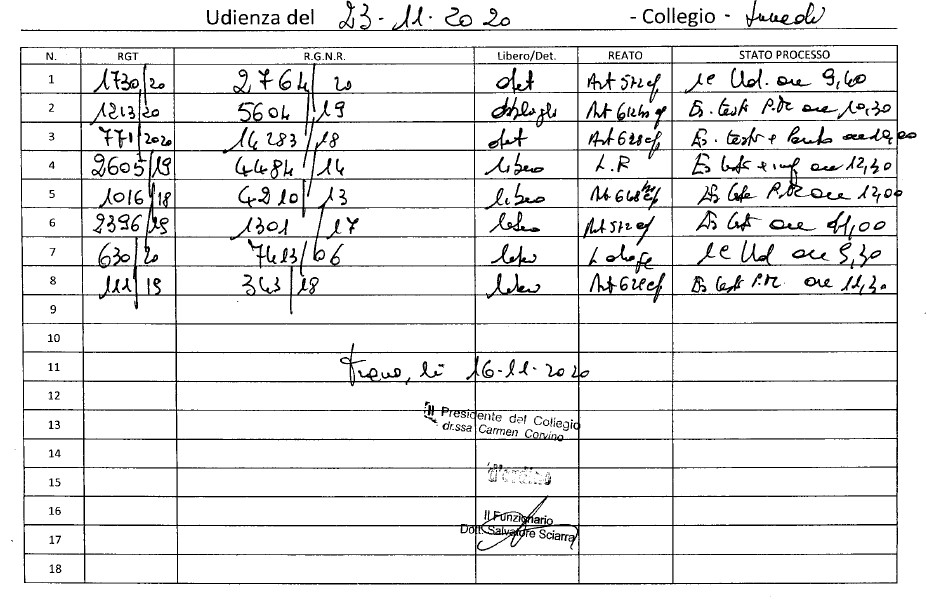 Udienza del 23-11-2020 - Collegio - lunedì
N. RGT R.G.N.R. Libero/Det. REATO STATO PROCESSO
1 1730/20 2764/20 det Art 572 cp 1ª Ud. ore 9,40
2 1213/20 5604/19 Art 612 cp Es. testi P.M. ore 10,30
3 771/2020 14283/18 det Art 628 cp Es. testi + ore
4 2605/19 4484/14 libero L.F. Es testi + ore 12,30
5 1016/18 4210/13 libero Art 648 cp Es teste P.M. ore 12,00
6 2396/19 1301/17 libero Art 572 cp Es testi ore 11,00
7 630/20 7413/06 libero 1ª Ud ore 9,30
8 111/19 343/18 libero Art 628 cp Es testi P.M. ore 11,30
9
10
11 lì 16-11-2020
12
13 Il Presidente del Collegio
dr.ssa Carmen Corvino
14
15 d'ordine
16 Il Funzionario
17 Dott. Salvatore Sciarra
18